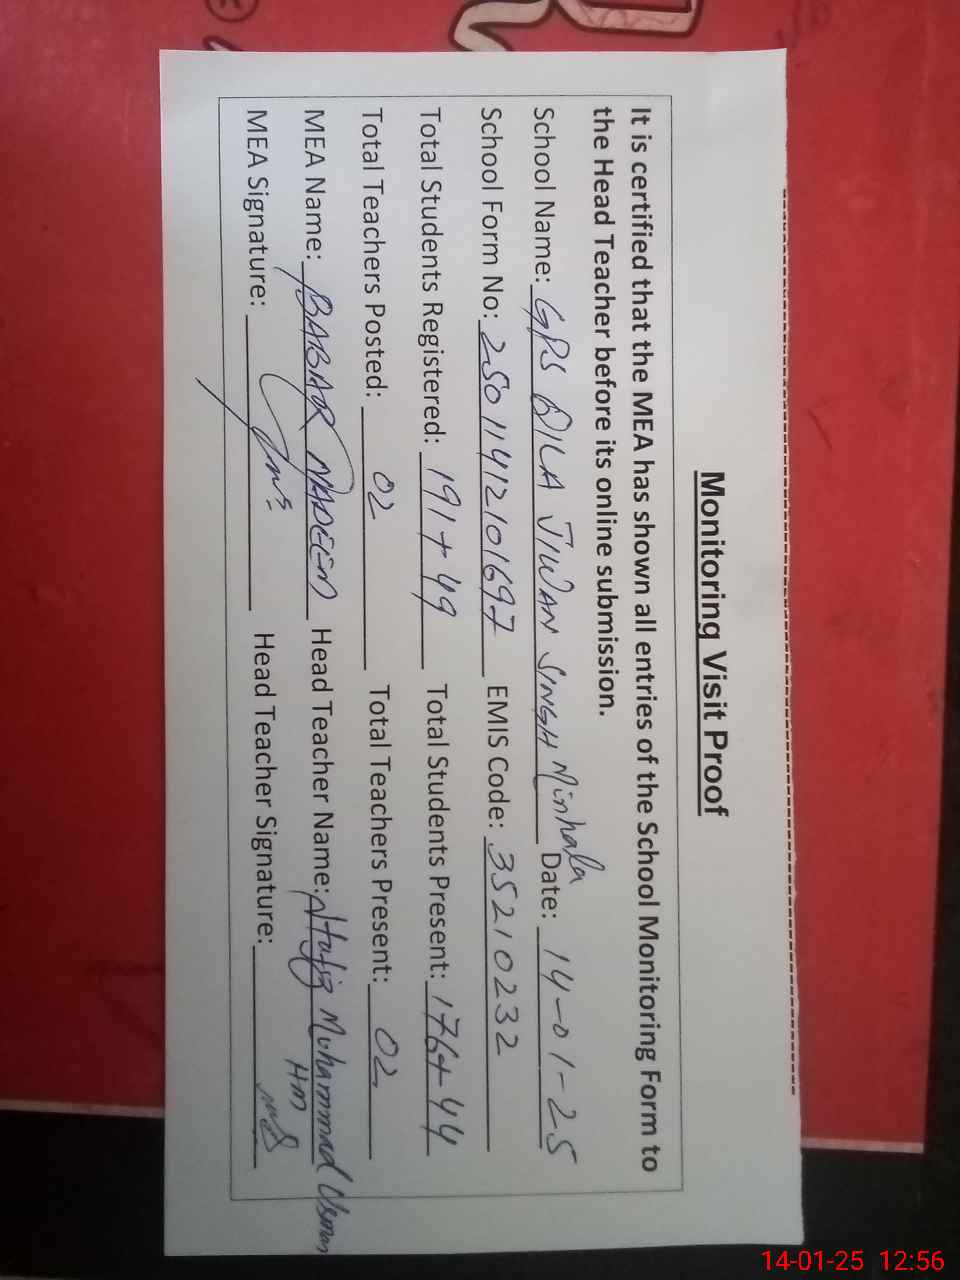 Monitoring Visit Proof
It is certified that the MEA has shown all entries of the School Monitoring Form to
the Head Teacher before its online submission.
School Name: GPS QILA JIWAN SINGH Minhala Date: 14-01-25
School Form No: 25011412101697 EMIS Code: 35210232
Total Students Registered: 191+49 Total Students Present: 176+44
Total Teachers Posted: 02 Total Teachers Present: 02
MEA Name: BABAR NADEEM Head Teacher Name: Hafiz Mohammad Usman
HM
MEA Signature: Head Teacher Signature:
14-01-25 12:56